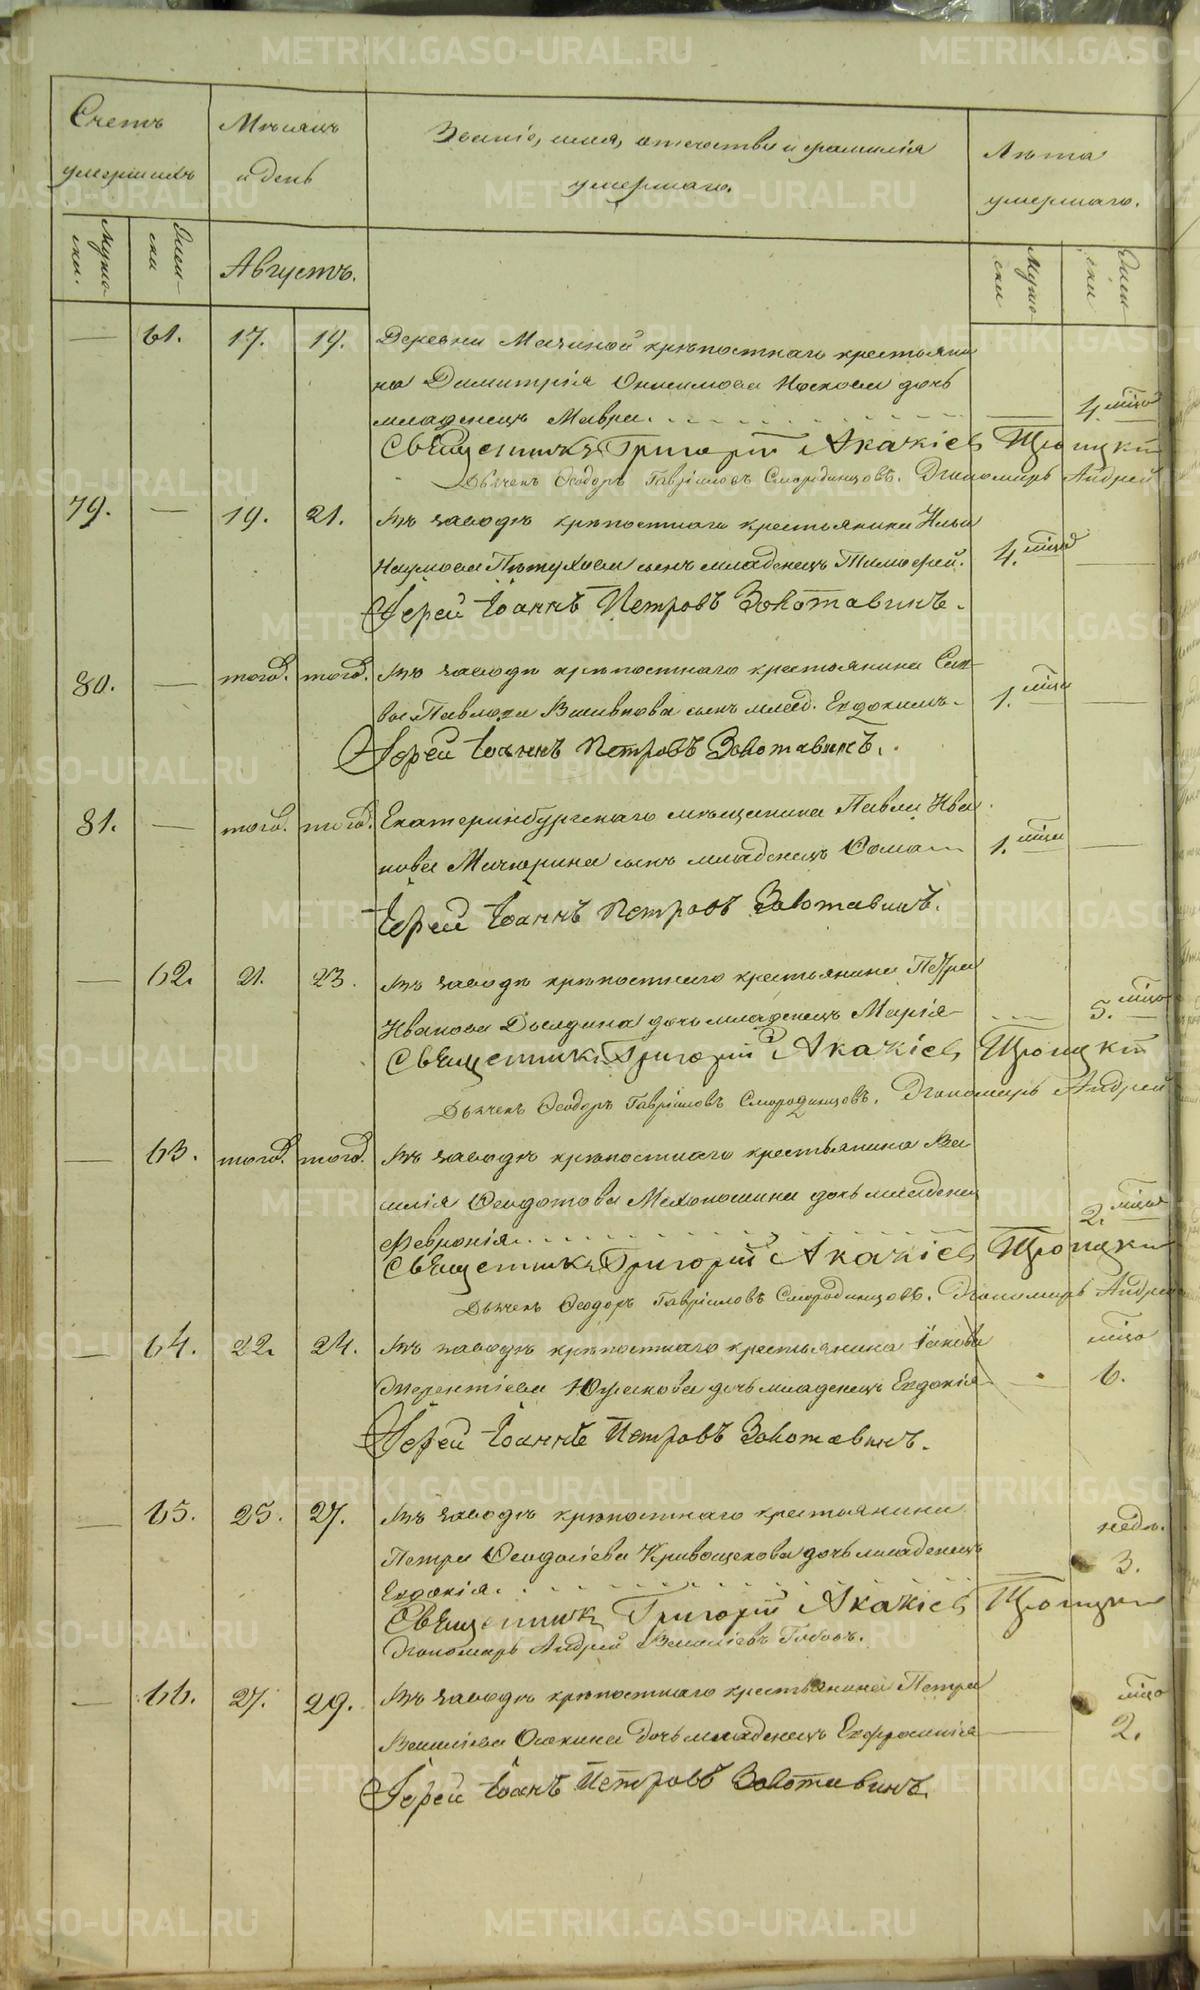 METRIKI.GASO-URAL.RU
Счетъ умершихъ
Мѣсяцъ и день
Званіе, имя, отчество и фамилія умершаго.
Лѣта умершаго.
Мужески.
Женски
Августъ.
Мужески
Женски
— 61. 17. 19. Деревни крѣпостнаго крестьяни
на Димитрія Онисимова Носкова дочь
младенецъ Мавра. 4. мѣсяц
Священникъ Григорій Акакіевъ Троицкій
Дьячекъ Ѳеодоръ Гавріиловъ Смородинцовъ. Пономарь Андрей
79. — 19. 21. Въ заводѣ крѣпостнаго крестьянина Ильи
Наумова Пѣтухова сынъ младенецъ Тимофей. 4. мѣсяц —
Іерей Іоаннъ Петровъ Золотавинъ.
80. — тогож. тогож. Въ заводѣ крѣпостнаго крестьянина Сав
вы Павлова сынъ млад. Евдокимъ. 1. мѣсяц —
Іерей Іоаннъ Петровъ Золотавинъ.
81. — тогож. тогож. Екатеринбургскаго мѣщанина Павла Ива
нова Мичюрина сынъ младенецъ Ѳома 1. мѣсяц —
Іерей Іоаннъ Петровъ Золотавинъ.
— 62. 21. 23. Въ заводѣ крѣпостнаго крестьянина Петра
Иванова дочь младенецъ Марія — 5. мѣсяц
Священникъ Григорій Акакіевъ Троицкій
Дьячекъ Ѳеодоръ Гавріиловъ Смородинцовъ. Пономарь Андрей
— 63. тогож. тогож. Въ заводѣ крѣпостнаго крестьянина Ва
силія Ѳеодотова Мехоношина дочь младенец
Февронія. 2. мѣсяц
Священникъ Григорій Акакіевъ Троицкій
Дьячекъ Ѳеодоръ Гавріиловъ Смородинцовъ. Пономарь Андрей
— 64. 22. 24. Въ заводѣ крѣпостнаго крестьянина Іакова
Терентіева дочь младенецъ Евдокія — мѣсяц 6.
Іерей Іоаннъ Петровъ Золотавинъ.
— 65. 25. 27. Въ заводѣ крѣпостнаго крестьянина
Петра Ѳеодосіева Кривощекова дочь младенецъ
Евдокія. недѣл. 3.
Священникъ Григорій Акакіевъ Троицкій
Пономарь Андрей Василіевъ
— 66. 27. 29. Въ заводѣ крѣпостнаго крестьянина Петра
Василіева дочь младенецъ Евфросинія — мѣсяц 2.
Іерей Іоаннъ Петровъ Золотавинъ.